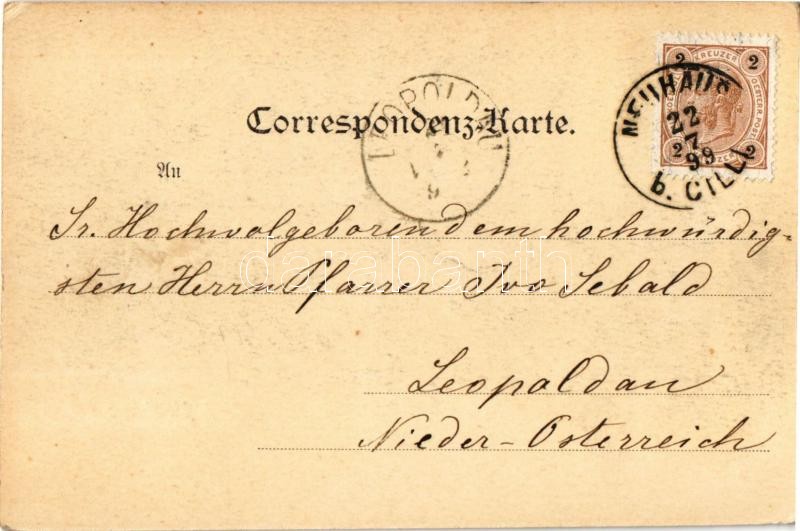 2 KREUZER 2
NEUHAUS
22
7
99
b. CILLI
2 2
LEOPOLDAU
Correspondenz-Karte.
An
Sr. Hochwolgeboren dem hochwürdig-
sten Herrn Pfarrer Ivo Sebald
darabanth
Leopoldau
Nieder-Österreich